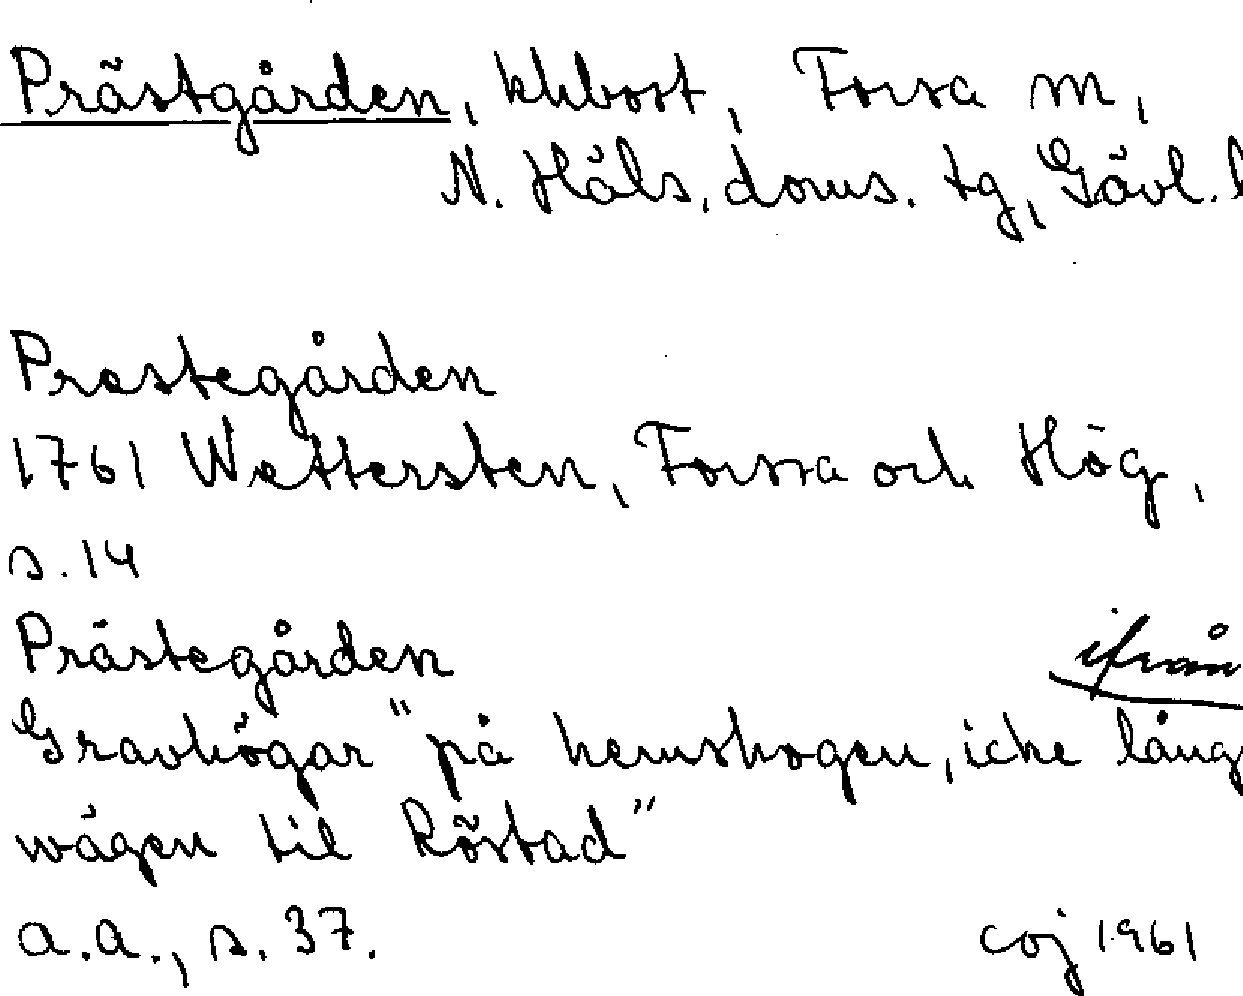 Prästgården, khbost, Forsa sn,
N. Häls. doms. tg, Gävl. l
Prestegården
1761 Wettersten, Forssa och Hög,
s. 14
Prästegården
ifrån
Gravhögar "på hemskogen, icke lång
wägen til Röstad"
a.a., s. 37.
coj 1961